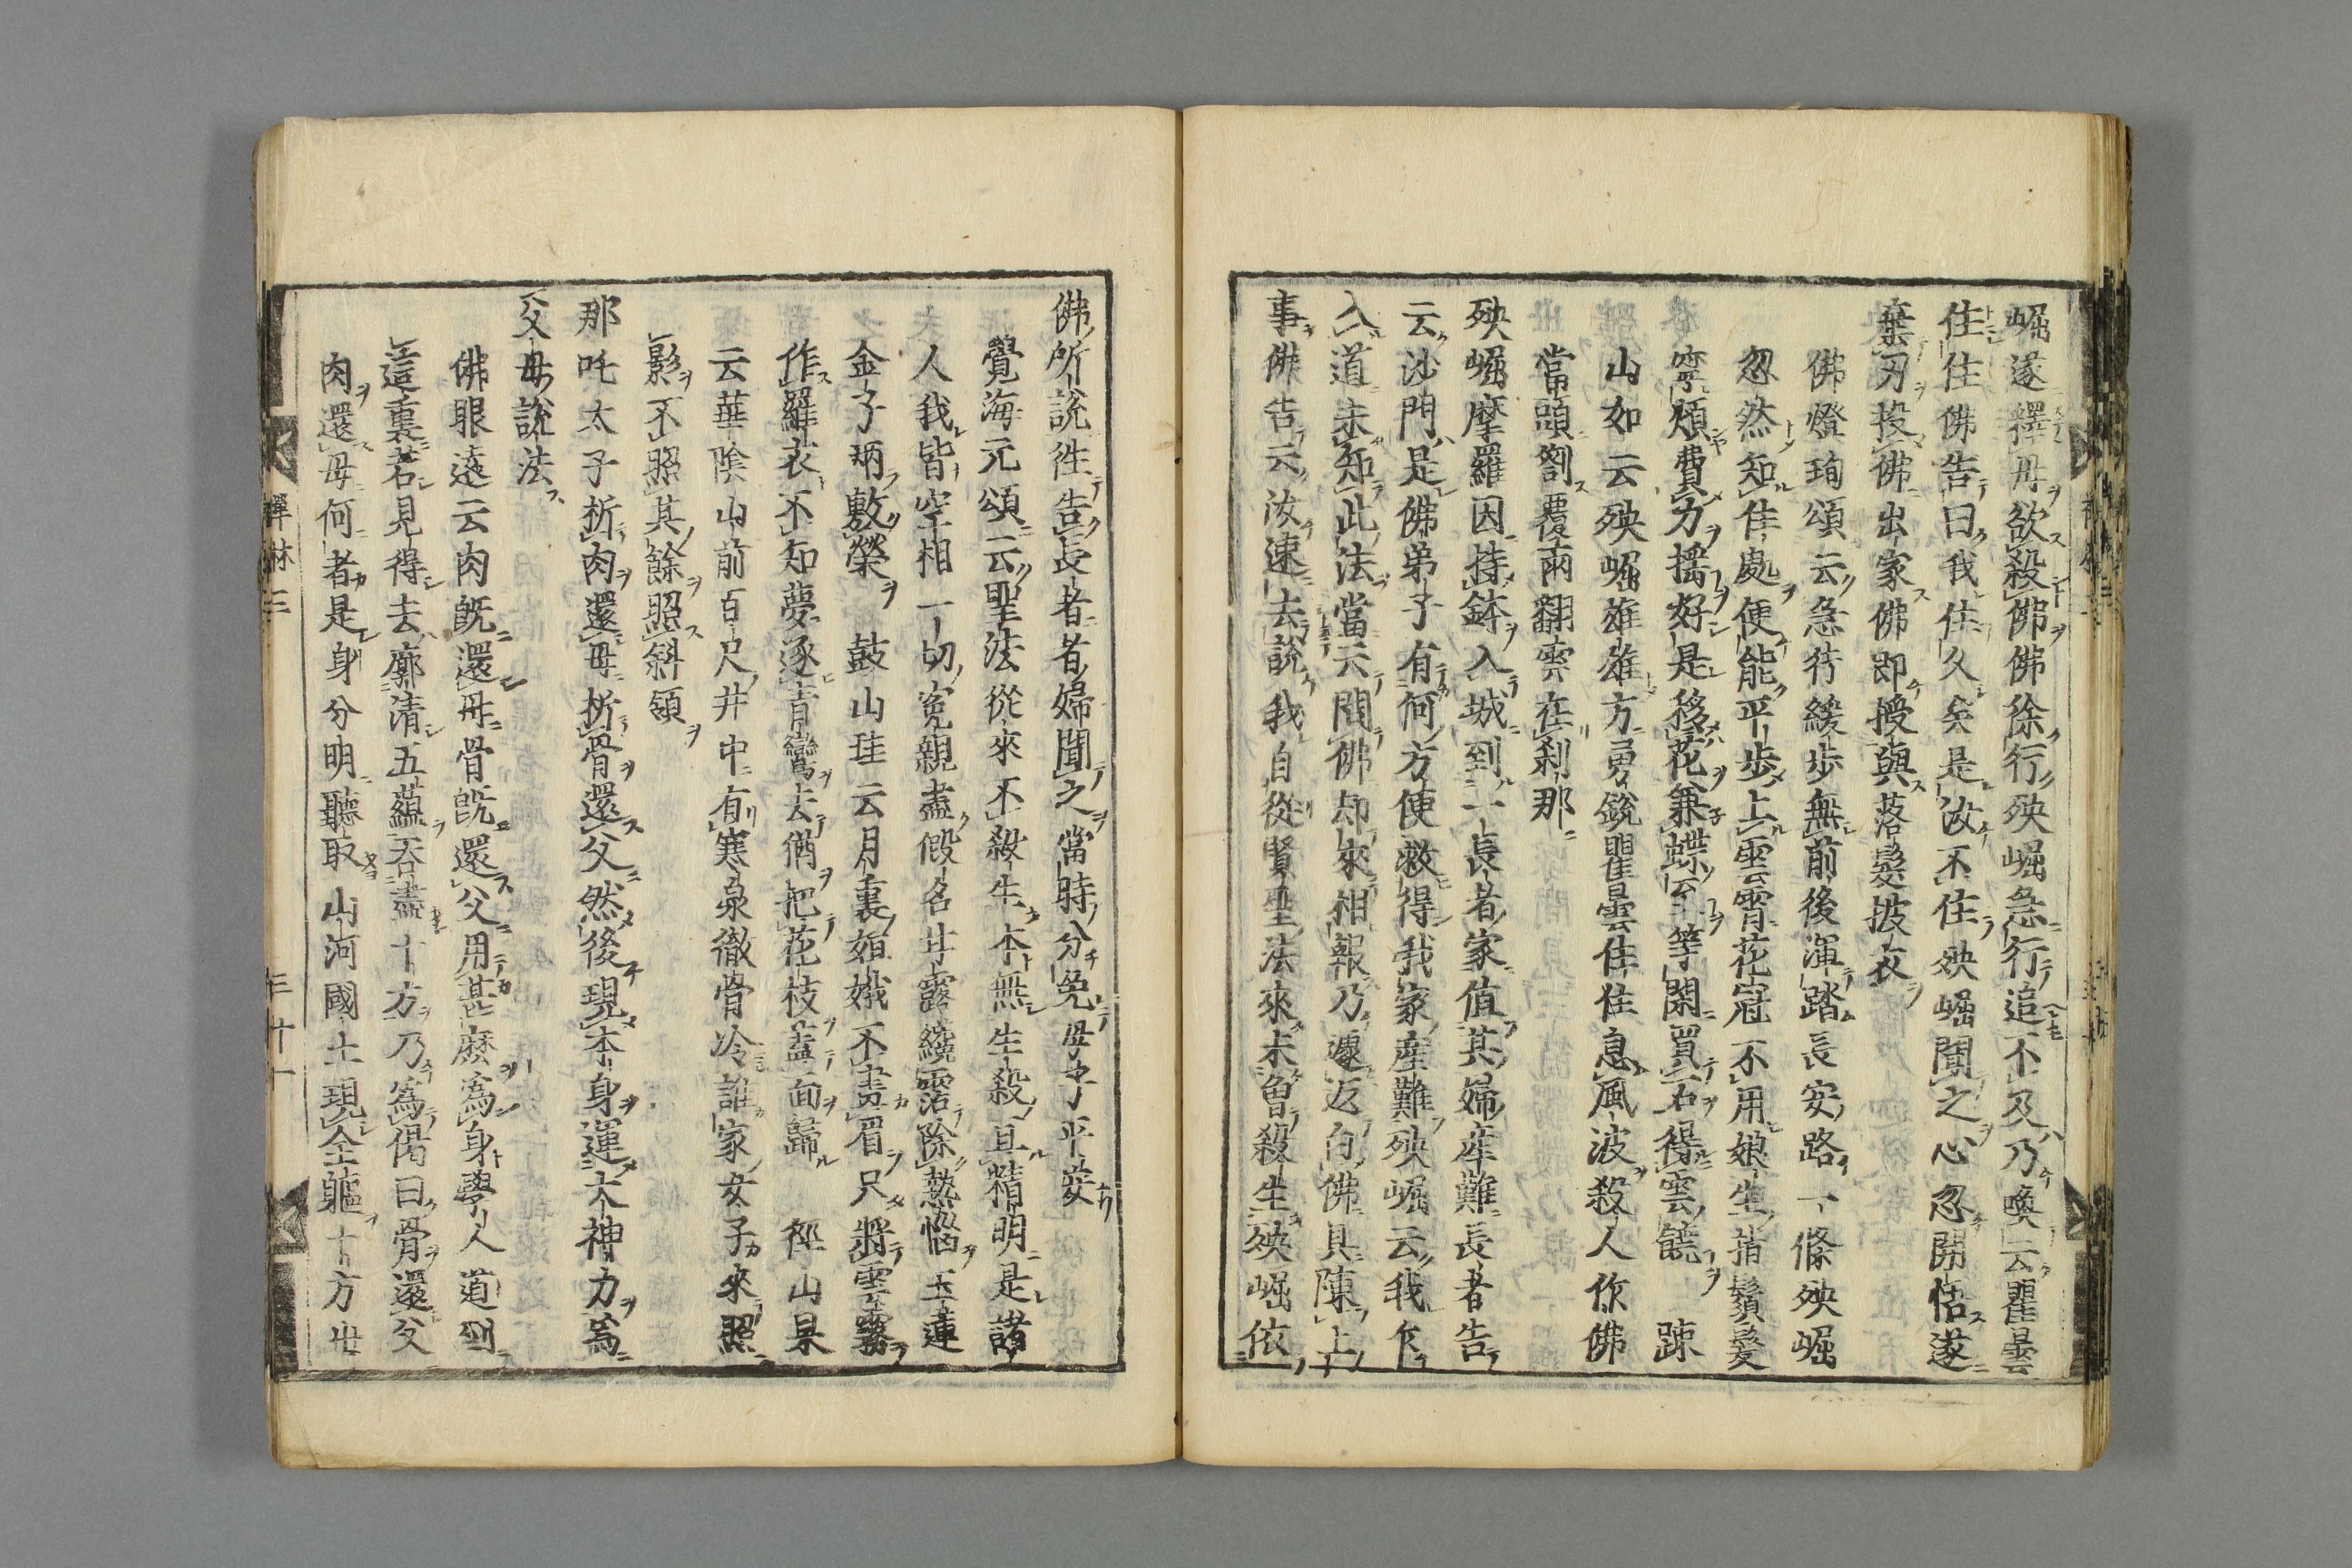 崛遂擇母欲殺佛佛徐行殃崛急行追不及乃喚云瞿曇
住住佛告曰我住久矣是汝不住殃崛聞之心忽開悟遂
棄刃投佛出家佛即授與落髮披衣
佛燈珣頌云急行緩步無前後渾踏長安路一條殃崛
忽然知住處便能平步上雲霄花冠不用娘生指鬚髮
寧煩費力搖好是移花兼蝶至等閑買石得雲饒 踈
山如云殃崛雄雄方勇銳瞿曇住住息風波殺人作佛
當頭劄覆雨翻雲在剎那
殃崛摩羅因持鉢入城到一長者家值其婦產難長者告
云沙門是佛弟子有何方便救得我家產難殃崛云我乍
入道未知此法當云問佛却來相報乃遽返白佛具陳上
事佛告云汝速去說我自從賢聖法來未曾殺生殃崛依
佛所說往告長者者婦聞之當時分免母子平安
覺海元頌云聖法從來不殺生本無生殺且精明是諸
人我皆空相一切冤親盡假名甘露纔霑除熱惱玉蓮
金子炳敷榮 鼓山珪云月裏姮娥不畫眉只將雲霧
作羅衣不知夢逐青鸞去猶把花枝蓋面歸 徑山杲
云華陰山前百尺井中有寒泉徹骨冷誰家女子來照
影不照其餘照斜領
那吒太子析肉還母析骨還父然後現本身運大神力為
父母說法
佛眼遠云肉既還母骨既還父用甚麽為身學人道到
這裏若見得去廓清五蘊吞盡十方乃為偈曰骨還父
肉還母何者是身分明聽取山河國土現全軀十方世
禪林三 三十一